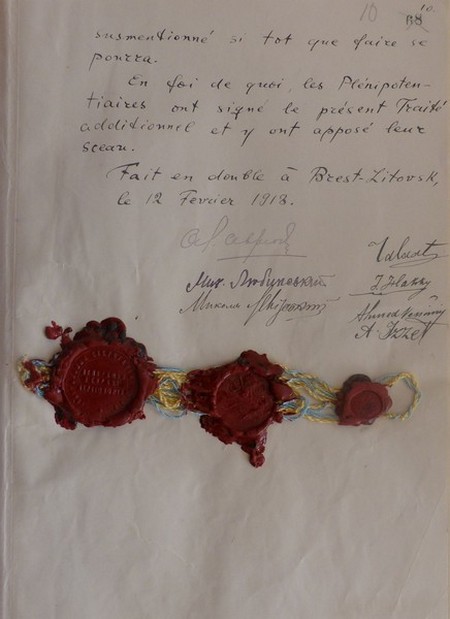 10
susmentionné si tot que faire se
pourra.
En foi de quoi, les Plénipoten-
tiaires ont signé le présent Traité
additionnel et y ont apposé leur
sceau.
Fait en double à Brest-Litovsk,
le 12 Fevrier 1918.
Talaat
Мик. Любинський
Микола
Ahmed
A. Izzet